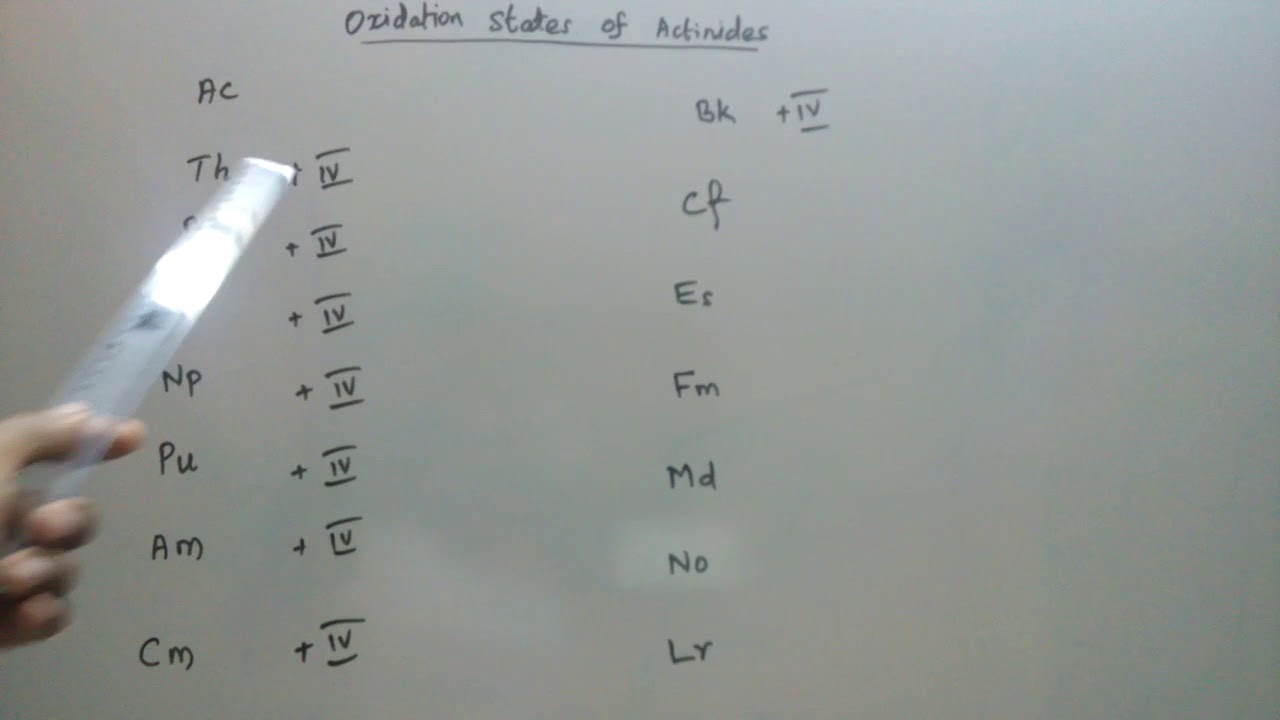 Oxidation States of Actinides
Ac
Th + IV
+ IV
+ IV
Np + IV
Pu + IV
Am + IV
Cm + IV
Bk + IV
Cf
Es
Fm
Md
No
Lr